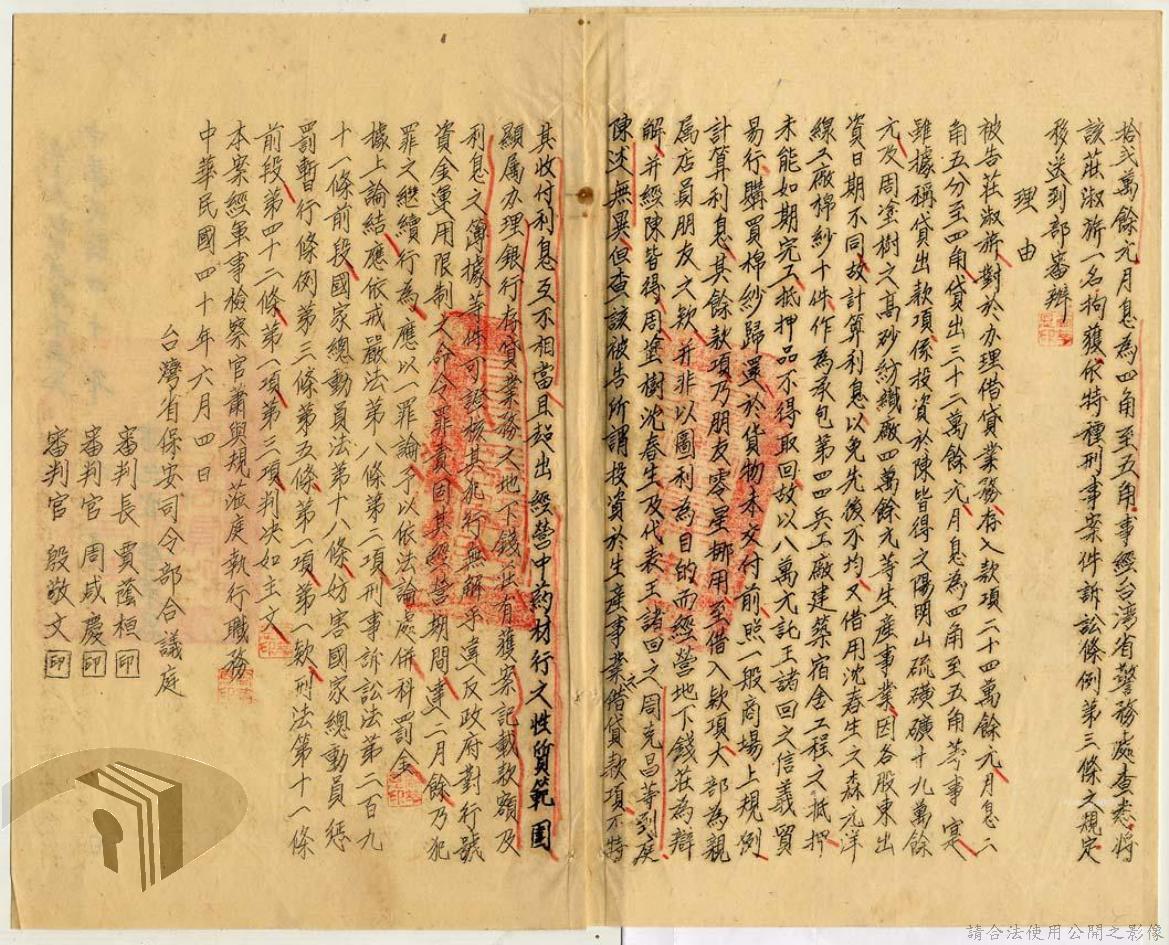 拾弍萬餘元月息為四角至五角事經台湾省警務處查悉將
該莊淑旂一名拘獲依特種刑事案件訴訟條例第三條之規定
移送到部審辦
理由
被告莊淑旂對於办理借貸業務存入款項二十四萬餘元月息二
角五分至四角貸出三十二萬餘元月息為四角至五角等事寔
雖據稱貸出款項係投資於陳皆得之陽明山硫磺礦廿九萬餘
元及周塗樹之高砂紡織廠四萬餘元等生產事業因各股東出
資日期不同故計算利息以免先後不均又借用沈春生之森元洋
線工廠棉紗十件作為承包第四四兵工廠建築宿舍工程之抵押
未能如期完工抵押品不得取回故以八萬元託王諸回之信義貿
易行購買棉紗歸還於貨物未交付前照一般商場上規例
計算利息其餘款項乃朋友零星挪用至借入款項大部為親
属店員朋友之款并非以圖利為目的而經營地下錢莊為辯
解并經陳皆得周塗樹沈春生及代表王諸回之周克昌等到庭
陳述無異但查該被告所謂投資於生產事業借貸款項不特
其收付利息互不相當且超出經營中約材行之性質範圍
顯属办理銀行存貸業務之地下錢莊有獲案記載款額及
利息之簿據等件可證核其犯行無解乎違反政府對行號
資金運用限制之命令罪責因其經營期間達二月餘乃犯
罪之継續行為應以一罪論予以依法論處併科罰金
據上論結應依戒嚴法第八條第二項刑事訴訟法第二百九
十一條前段國家總動員法第十八條妨害國家總動員懲
罰暫行條例第三條第五條第一項第一款刑法第十一條
前段第四十二條第一項第三項判决如主文
本案經軍事檢察官蕭與規蒞庭執行職務
中華民國四十年六月四日
台灣省保安司令部合議庭
審判長 賈蔭桓 印
審判官 周咸慶 印
審判官 殷敬文 印
請合法使用公開之影像